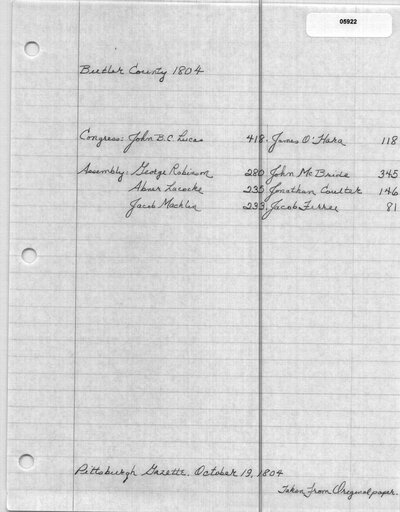 05922
Butler County 1804
Congress: John B.C. Lucas 418. James O'Hara 118
Assembly: George Robinson 280 John McBride 345
Abner Lacocke 235 Jonathan Coulter 146
Jacob Mechlin 233 Jacob Ferree 81
Pittsburgh Gazette. October 19, 1804
Taken From Original paper.